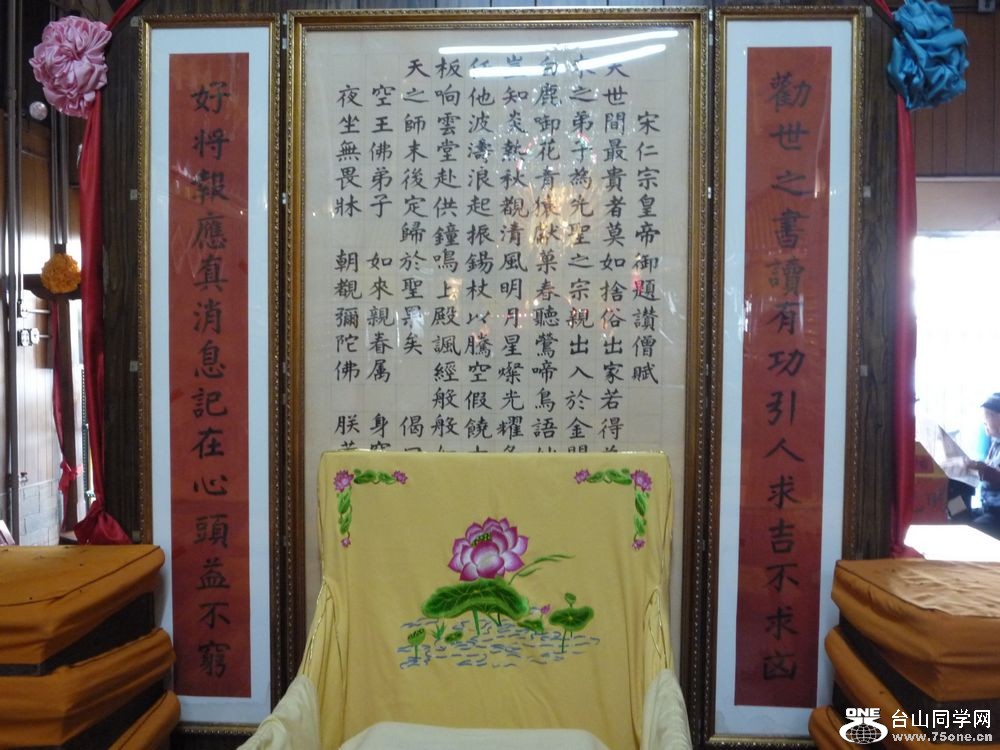 勸世之書讀有功引人求吉不求凶
宋仁宗皇帝御題讚僧賦
世間最貴者莫如捨俗出家若得
之弟子為先聖之宗親出入於金門
鹿啣花青猿獻菓春聽鶯啼鳥語
豈知炎熱秋觀清風明月星燦光耀冬
任他波濤浪起振錫杖以騰空假饒
板响雲堂赴供鐘鳴上殿諷經般般
天之師末後定歸於聖果矣 偈曰
空王佛弟子 如來親眷属 身穿
夜坐無畏牀 朝觀彌陀佛 朕
好将報應真消息記在心頭益不窮
ONE
台山同学网
www.75one.cn